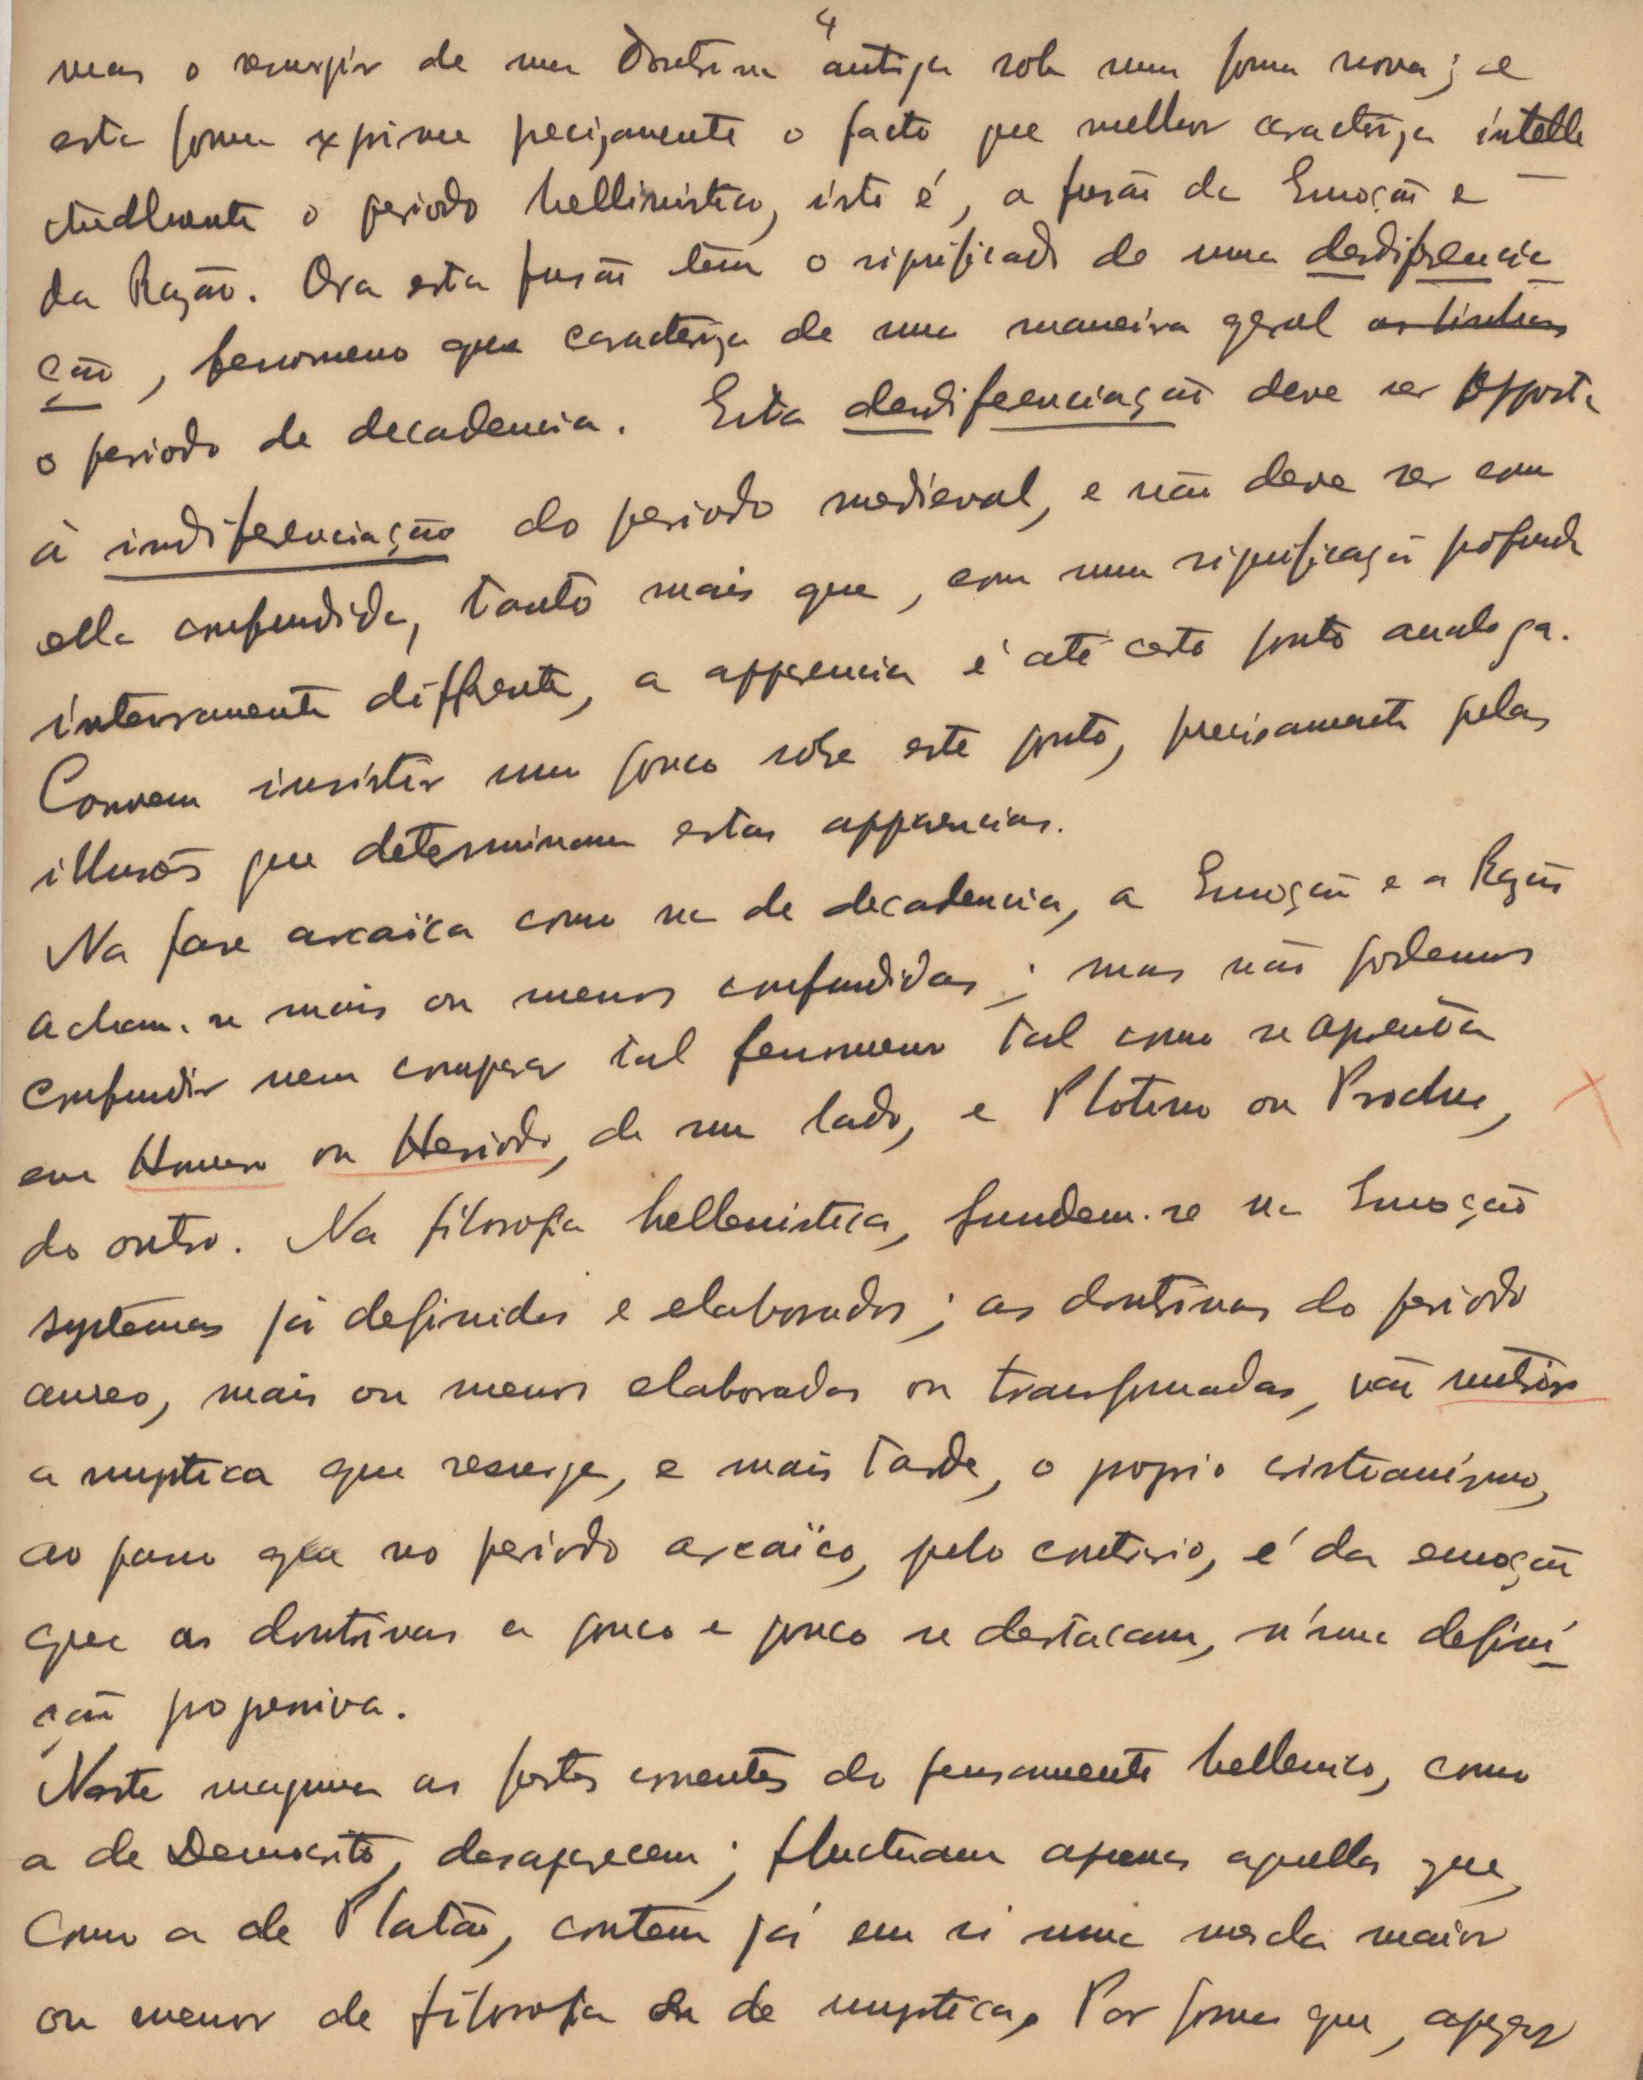 4
mas o resurgir de uma doutrina antiga sob uma forma nova; e
esta forma exprime precizamente o facto que melhor caracteriza intelle
ctualmente o periodo hellinistico, isto é, a fusão da Emoção e
da Razão. Ora esta fusão tem o significado de uma desdiferencia
ção, fenomeno que caracteriza de uma maneira geral as linhas
o periodo de decadencia. Esta desdiferenciação deve ser opposta
á indiferenciação do periodo medieval, e não deve ser com
ella confundida, tanto mais que, com uma significação profunda
inteiramente diffrente, a apparencia é até certo ponto analoga.
Convem insistir um pouco sobre este ponto, precisamente pelas
illusões que determinam estas apparencias.
Na fase arcaïca como na de decadencia, a Emoção e a Razão
acham-se mais ou menos confundidas; mas não podemos
confundir nem comparar tal fenomeno tal como se apresenta
em Homero ou Hesiodo, de um lado, e Plotino ou Proclus,
do outro. Na filosofia hellenistica, fundem-se na Emoção
systemas já definidos e elaborados; as doutrinas do periodo
aureo, mais ou menos elaboradas ou transformadas, vão nutrir
a mystica que resurge, e mais tarde, o proprio cristianismo,
ao passo que no periodo arcaïco, pelo contrario, é da emoção
que as doutrinas a pouco e pouco se destacam, n'uma defini
ção progressiva.
Neste magma as fortes correntes do pensamento hellenico, como
a de Democrito, desaparecem; fluctuam apenas aquellas que,
como a de Platão, contem já em si uma mescla maior
ou menor de filosofia ou de mystica. Por forma que, apezar